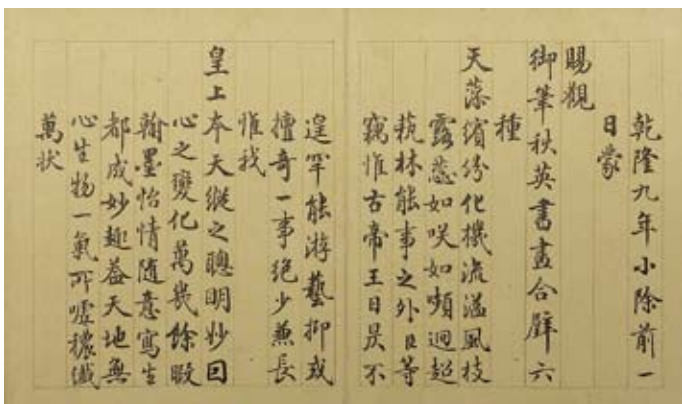 乾隆九年小除前一
日蒙
賜觀
御筆秋英書畫合璧六
種
天藻繽紛化機流溢風枝
露蕊如咲如嚬迥超
萟林能事之外臣等
竊惟古帝王日昃不
遑罕能游藝抑或
擅奇一事絶少兼長
惟我
皇上夲天縱之聰明妙因
心之變化萬幾餘暇
翰墨怡情隨意寫生
都成妙趣葢天地無
心生物一氣所噓穠纖
萬狀